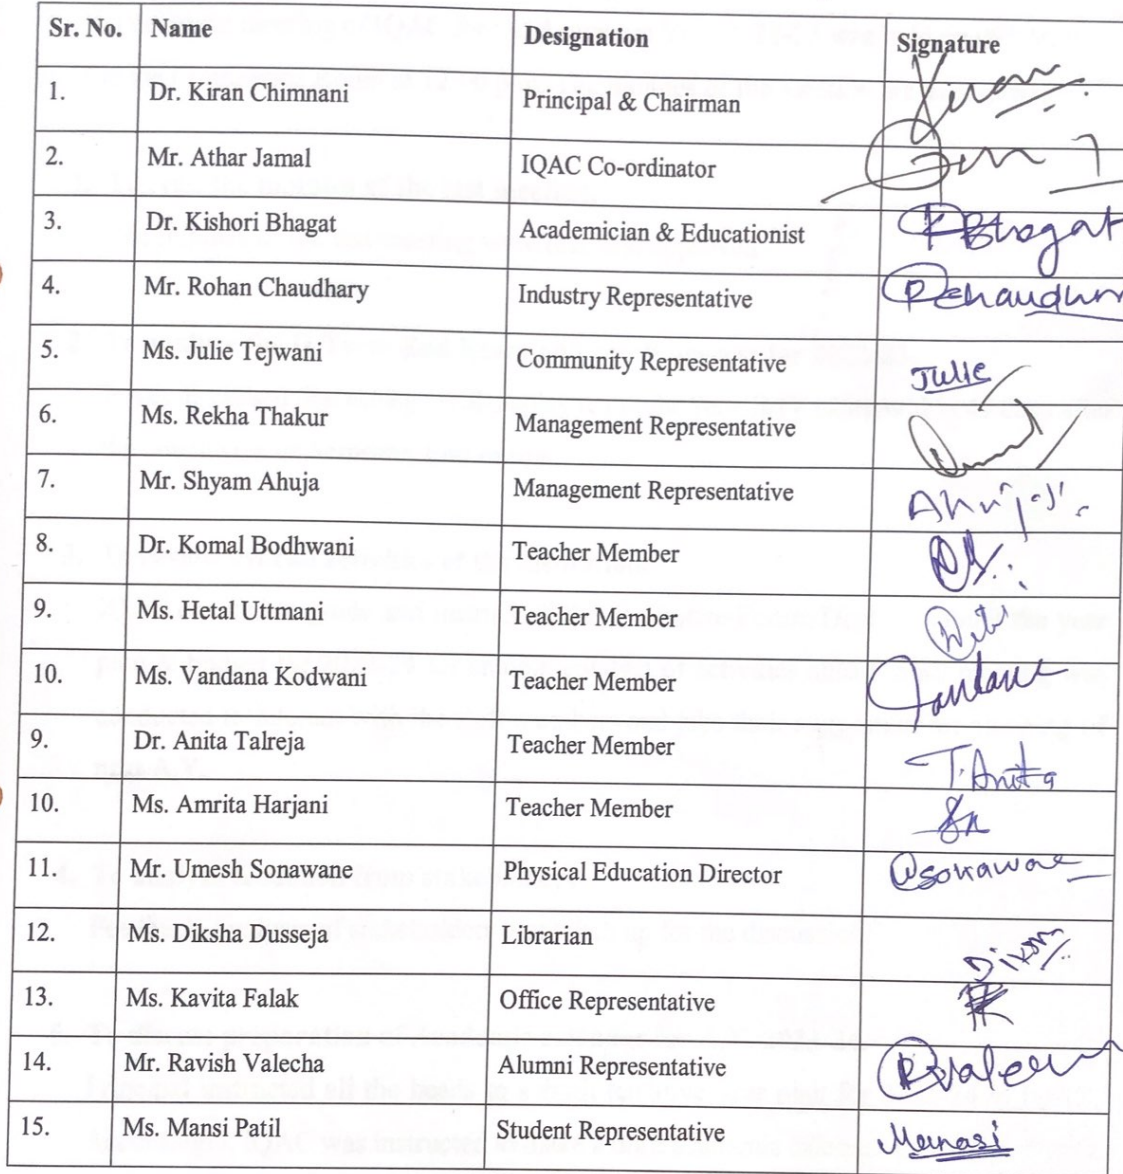 Sr. No. Name Designation Signature
1. Dr. Kiran Chimnani Principal & Chairman
2. Mr. Athar Jamal IQAC Co-ordinator
3. Dr. Kishori Bhagat Academician & Educationist KBhagat
4. Mr. Rohan Chaudhary Industry Representative
5. Ms. Julie Tejwani Community Representative Julie
6. Ms. Rekha Thakur Management Representative
7. Mr. Shyam Ahuja Management Representative
8. Dr. Komal Bodhwani Teacher Member
9. Ms. Hetal Uttmani Teacher Member
10. Ms. Vandana Kodwani Teacher Member
9. Dr. Anita Talreja Teacher Member T. Anita
10. Ms. Amrita Harjani Teacher Member
11. Mr. Umesh Sonawane Physical Education Director
12. Ms. Diksha Dusseja Librarian
13. Ms. Kavita Falak Office Representative
14. Mr. Ravish Valecha Alumni Representative
15. Ms. Mansi Patil Student Representative Manasi